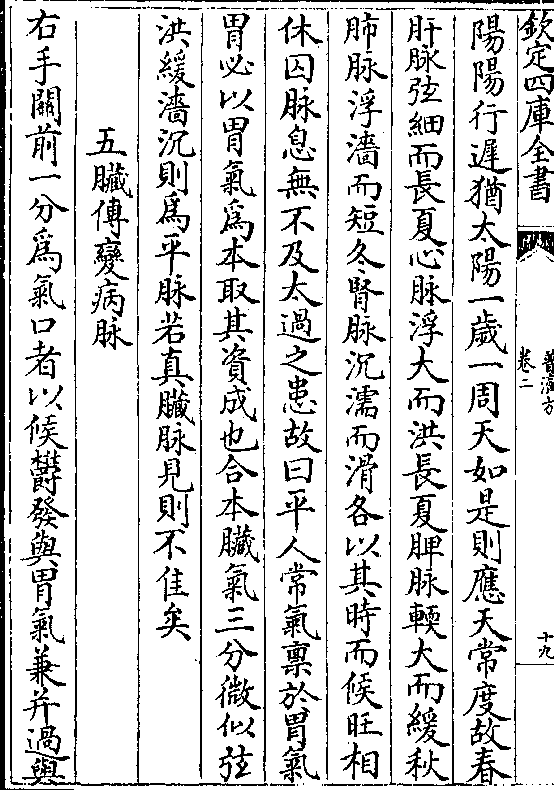 欽定四庫全書
普濟方
卷二
十九
陽陽行遲猶太陽一歲一周天如是則應天常度故春
肝脉弦細而長夏心脉浮大而洪長夏脾脉輭大而緩秋
肺脉浮濇而短冬腎脉沉濡而滑各以其時而候旺相
休囚脉息無不及太過之患故曰平人常氣禀於胃氣
胃必以胃氣爲本取其資成也合本臟氣三分微似弦
洪緩濇沉則爲平脉若真臟脉見則不佳矣
五臟傳變病脉
右手關前一分爲氣口者以候欝發與胃氣兼并過與